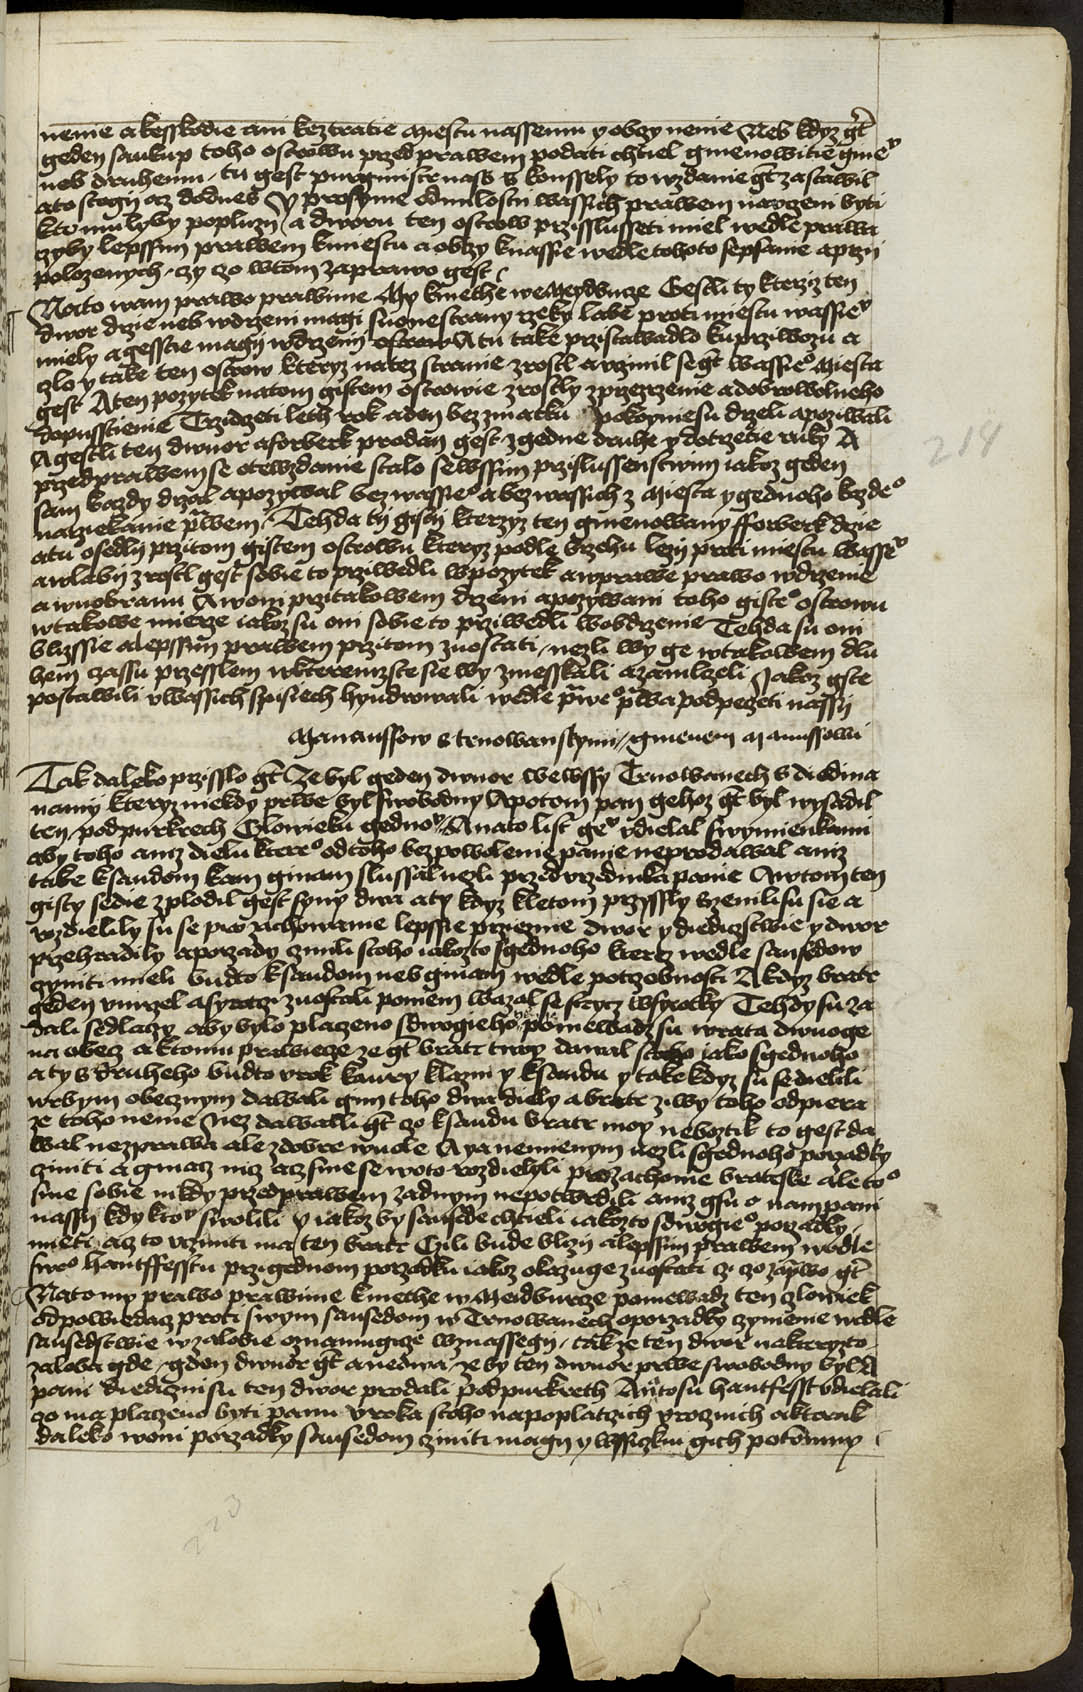 nenie a kesskodie ani keztratie Miestu nassemu y obczy nenie Neb kdyz gt
geden saukup toho ostrowu przed prawem podati chtiel gmenowitie gineo
neb druhemu / tu gest purgmistr nass s konssely to wzdanie gt zastawil
a to stogij az dodnes Y prosyme odmilosti wassich prawem nauczeni byti
kto mulyby popluzij / a dworu ten ostrow przisslusseti miel wedle prawa
czyly lepssim prawem k miestu a obczy k nassie wedle tohoto sepsanie a przi
polozenych / czy czo w tom za prawo gest
Na to wam prawo prawime My kmethe we Meydburcze Gestli ty kterziz ten
dwor drzie neb w drzeni magi s one strany rzeky labe proti miestu wassieo
miely a gesstie magij w drzenij ostrow A tu take przistawadlo ku przewozu a
czlo y take ten ostrow kteryz na tez stranie zrostl a vczinil se gt wassieo Miesta
gest A ten pozytek na tom gistem ostrowie zrostly z przezrzenie a dobrowolneho
dopusstienie Trzidczeti leth rok a den bez zmatku pokoynie su drzeli a pozywali
A gestli ten dwuor a forberk prodan gest z gedne druhe y do trzetie ruky A
przed prawem se otewzdanie stalo se wssim przislussenstwim iakoz geden
sam kazdy drzal a pozywal bez wassieo a bez wassich z Miesta y gednoho kazdeo
narziekanie prawem / Tehda tij gisti kterzyz ten gmenowany fforberk drzie
a tu osedlij przi tom gistem ostrowu kteryz podle brzehu lezij proti miestu wasseo
a w labij zrostl gest sobie to przywedli w pozytek a w prawe prawo w drzenie
a w uobranu A w oni przi takowem drzeni a pozywani toho gisteo ostrowu
w takowe mierze iakoz su oni sobie to przywedli w obdrzenie Tehda su oni
blizssie a lepssim prawem przi tom zuostati / nezli wy ge w takowem dlu
hem czassu przesslem w kteremz ste sie wy zmesskali a zamlczeli Jakoz gste
postawili v wassich spisiech hyndrowali wedle praweo prawa pod peczeti nassij
Manaussow s trnowanskymi / gmenem Manussowi
Tak daleko przisslo gt Ze byl geden dwuor we wssy Trnowanech s diedina
namy kteryz niekdy prwe byl swobodny A potom pan gehoz gt byl wysadil
ten / pod purkrech Czlowieku gednoo / A na to list geo vdielal s wymienkami
aby toho aniz dielu ktereo od toho bez powolenie panie neprodawal aniz
take k saudom kam ginam slussal nezli przed vrzednika panie A w tom ten
gisty sedie zplodil gest syny dwa a ty kdyz k letom przyssly vzenilisu sie a
rozdielily su se pro zachowanie lepssie prziezne dwor y diedicztwie y dwor
przehradily a porzady czinili s toho iakozto s gednoho kterz wedle sausedow
gyniti mieli budto k saudom neb ginam wedle potrzebnosti A kdyz bratr
geden vmrzel a syrotczi zuostali po niem wazal se strycz w syrotky Tehdy su za
dali sedlaczy aby bylo placzeno s dwogieho poniewadz su wrata dwuoge
na obecz a k tomu prawiecze ze gt bratr twoy dawal s toho iako s gednoho
a ty s druheho budto vrok kawry klazni y k saudu y take kdyz su se dielili
w rbym obecznym dawali gim toho dwa diely a bratr ziwy toho odpiera
ze toho nenie Nez dawalli gt czo k saudu bratr moy neboztik to gest da
wal nez prawa ale z dobre wuole A ya nemienym nezli s gednoho porzadky
cziniti a gmacz nicz acz sme se w oto rozdielyli pro zachowanie bratrske ale too
sme sobie nikdy przed prawem zadnym nepotwrdili aniz gsu o nam pani
nassij kdy kto swolili y iakoz by sausede chtieli iakozto s dwogieo porzadky
mieti / acz to vcziniti ma ten bratr Czili bude blizij a lepssim prawem wedle
sweo hantffesstu przi gednom porzadku iakoz okazuge zuostati cz czo za prawo gt
Na to my prawo prawime kmethe w Meidburcze poniewadz ten czlowiek
odpowiedacz proti swym sausedom w Trnowanech o porzadky czinienie wedle
sausedstwie w zalobie oznamugicze w znassegij / tak ze ten dwor na kteryzto
zaloba gde / geden dwuor gt a nedwa / ze by ten dwuor prwe swobodny byl A
pani diediczni su ten dwor prodali pod purkreth A na to su hantfesst vdielali
czo ma placzeno byti panu vroka s toho na poplatczich vroczních a kterak
daleko w oni porzadky sausedom cziniti magij y wssiczkni gich potomny
218
223